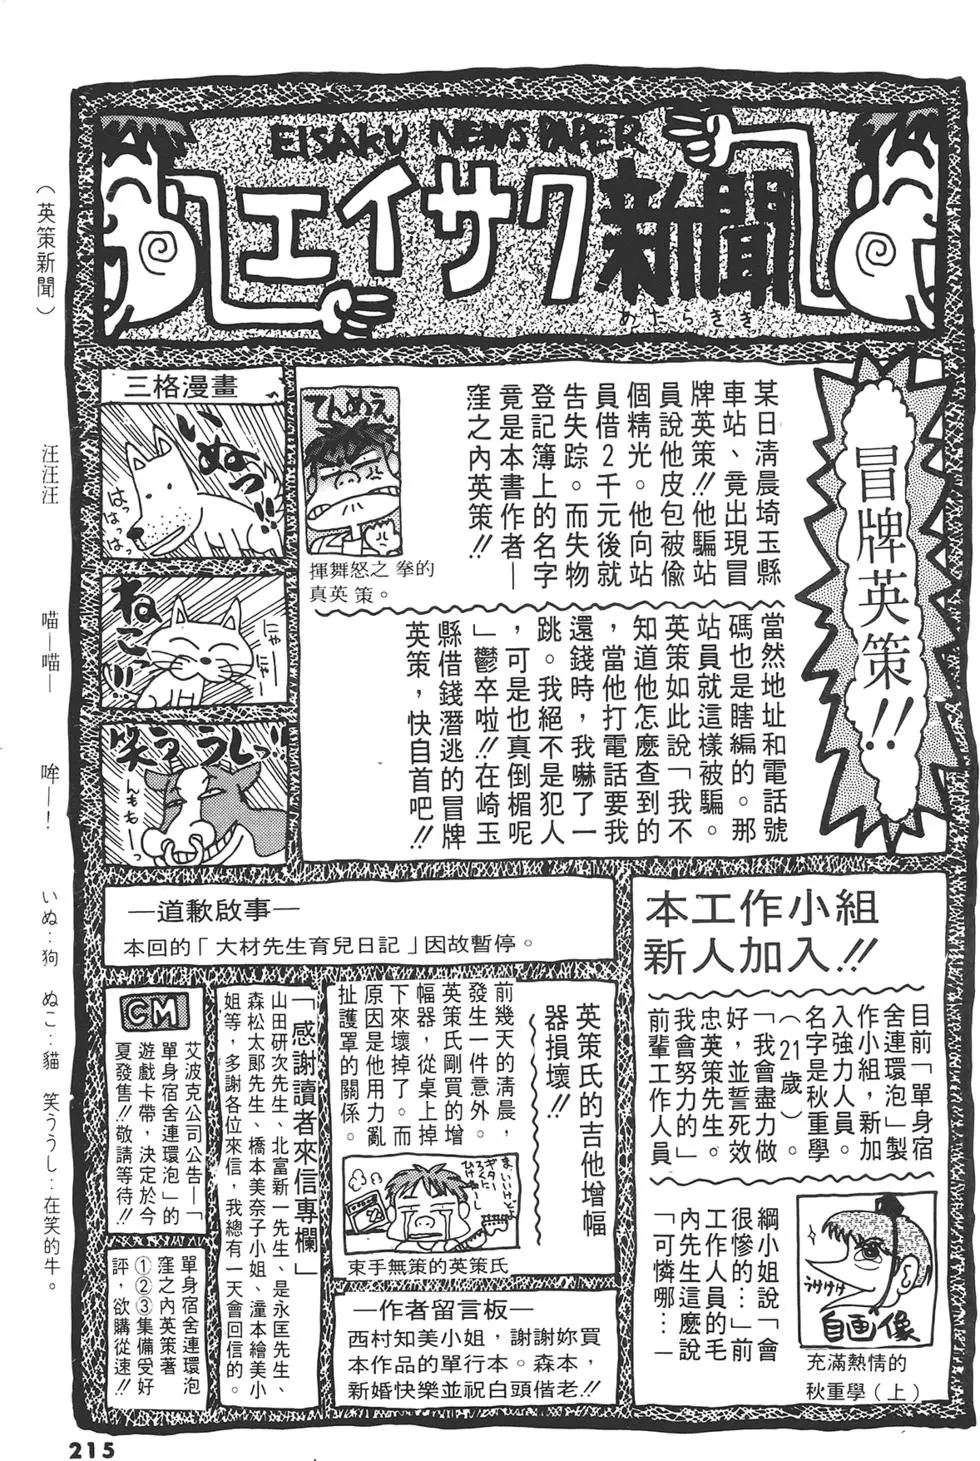 EISAKU NEWS PAPER
エイサク新聞
めたらきき
（英策新聞）
冒牌英策!!
某日清晨埼玉縣
車站、竟出現冒
牌英策!!他騙站
員說他皮包被偷
個精光。他向站
員借2千元後就
告失踪。而失物
登記簿上的名字
竟是本書作者—
窪之內英策!!
てんめえ
揮舞怒之 拳的
真英 策。
當然地址和電話號
碼也是瞎編的。那
站員就這樣被騙。
英策如此說「我不
知道他怎麼查到的
，當他打電話要我
還錢時，我嚇了一
跳。我絕不是犯人
，可是也真倒楣呢
」鬱卒啦!!在崎玉
縣借錢潛逃的冒牌
英策，快自首吧!!
三格漫畫
いぬっ!!
はっ
はっ
はっ
はっ
汪汪汪
ねこっ!!
にゃー
にゃー
喵—喵—
笑ううしっ!!
んももー
哞—!
いぬ：狗 ぬこ：貓 笑ううし：在笑的牛。
—道歉啟事—
本回的「大材先生育兒日記」因故暫停。
本工作小組
新人加入!!
目前「單身宿
舍連環泡」製
作小組，新加
入強力人員。
名字是秋重學
（21歲）。
「我會盡力做
好，並誓死效
忠英策先生。
我會努力的」
前輩工作人員
綱小姐說「會
很慘的…」前
工作人員的毛
內先生這麼說
「可憐哪…—
自画像
充滿熱情的
秋重學（上）
英策氏的吉他增幅
器損壞!!
前幾天的清晨，
發生一件意外。
英策氏剛買的增
幅器，從桌上掉
下來壞掉了。而
原因是他用力亂
扯護罩的關係。
束手無策的英策氏
—作者留言板—
西村知美小姐，謝謝妳買
本作品的單行本。森本，
新婚快樂並祝白頭偕老!!
「感謝讀者來信專欄」
山田研次先生、北富新一先生、是永匡先生、
森松太郎先生、橋本美奈子小姐、潼本繪美小
姐等，多謝各位來信，我總有一天會回信的。
CM
艾波克公司公告—「
單身宿舍連環泡」的
遊戲卡帶，決定於今
夏發售!!敬請等待!!
單身宿舍連環泡
窪之內英策著
①②③集備受好
評，欲購從速!!
215